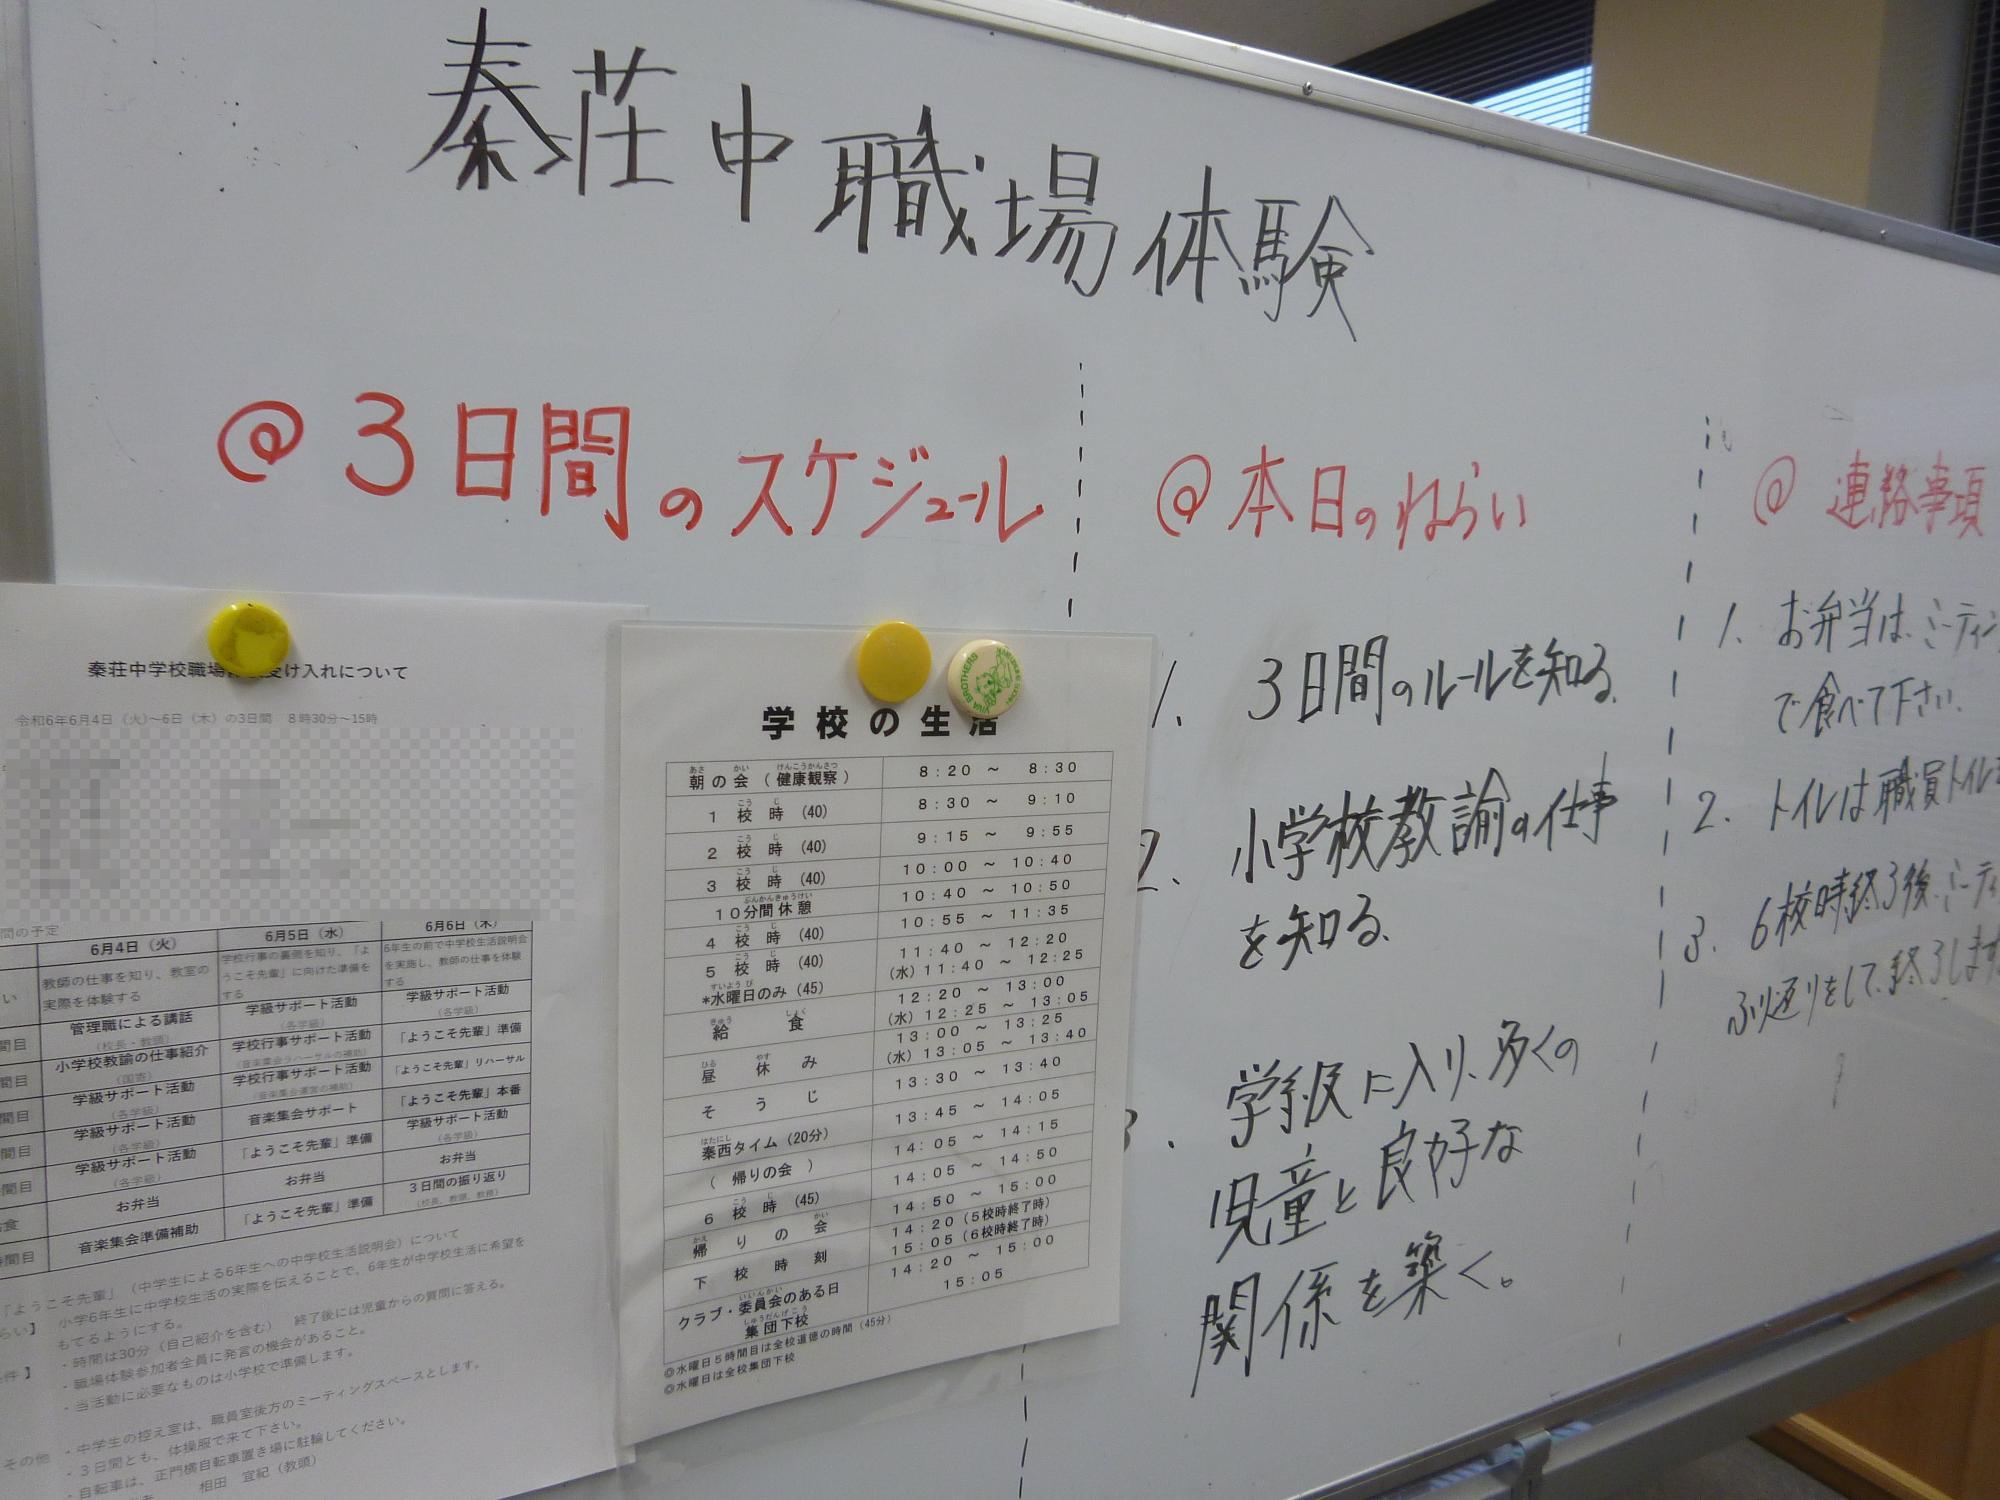 秦荘中職場体験
@3日間のスケジュール
@本日のねらい
1. 3日間のルールを知る。
2. 小学校教諭の仕事
を知る。
3. 学級に入り、多くの
児童と良好な
関係を築く。
@連絡事項
1. お弁当は、ミーティン
で食べて下さい。
2. トイレは職員トイレ
3. 6校時終了後、ミーティ
ふり返りをして、終了します
秦荘中学校職場 受け入れについて
令和6年6月4日（火）～6日（木）の3日間 8時30分～15時
間の予定
6月4日（火） 6月5日（水） 6月6日（木）
い 教師の仕事を知り、教室の実際を体験する 学校行事の裏側を知り、「ようこそ先輩」に向けた準備をする 6年生の前で中学校生活説明会を実施し、教師の仕事を体験する
間目 管理職による講話（校長・教頭） 学級サポート活動（各学級） 学級サポート活動（各学級）
間目 小学校教諭の仕事紹介 学校行事サポート活動（音楽集会リハーサルの補助） 「ようこそ先輩」準備
間目 学級サポート活動（各学級） 学校行事サポート活動（音楽集会運営の補助） 「ようこそ先輩」リハーサル
間目 学級サポート活動（各学級） 音楽集会サポート 「ようこそ先輩」本番
間目 学級サポート活動（各学級） 「ようこそ先輩」準備 学級サポート活動（各学級）
食 お弁当 お弁当 お弁当
間目 音楽集会準備補助 「ようこそ先輩」準備 3日間の振り返り（校長、教頭、教務）
「ようこそ先輩」（中学生による6年生への中学校生活説明会）について
らい】 小学6年生に中学校生活の実際を伝えることで、6年生が中学校生活に希望を
もてるようにする。
件】 ・時間は30分（自己紹介を含む） 終了後には児童からの質問に答える。
・職場体験参加者全員に発言の機会があること。
・当活動に必要なものは小学校で準備します。
その他 ・中学生の控え室は、職員室後方のミーティングスペースとします。
・3日間とも、体操服で来て下さい。
・自転車は、正門横自転車置き場に駐輪してください。
相田 宜紀（教頭）
VIVA BROTHERS
学校の生活
朝の会（健康観察） 8：20 ～ 8：30
1校時（40） 8：30 ～ 9：10
2校時（40） 9：15 ～ 9：55
3校時（40） 10：00 ～ 10：40
10分間休憩 10：40 ～ 10：50
4校時（40） 10：55 ～ 11：35
5校時（40） 11：40 ～ 12：20
*水曜日のみ（45） （水）11：40 ～ 12：25
給食 12：20 ～ 13：00
（水）12：25 ～ 13：05
昼休み 13：00 ～ 13：25
（水）13：05 ～ 13：40
そうじ 13：30 ～ 13：40
秦西タイム（20分） 13：45 ～ 14：05
（ 帰りの会 ） 14：05 ～ 14：15
6校時（45） 14：05 ～ 14：50
帰りの会 14：50 ～ 15：00
下校時刻 14：20（5校時終了時）
15：05（6校時終了時）
クラブ・委員会のある日 14：20 ～ 15：00
集団下校 15：05
◎水曜日5時間目は全校道徳の時間（45分）
◎水曜日は全校集団下校